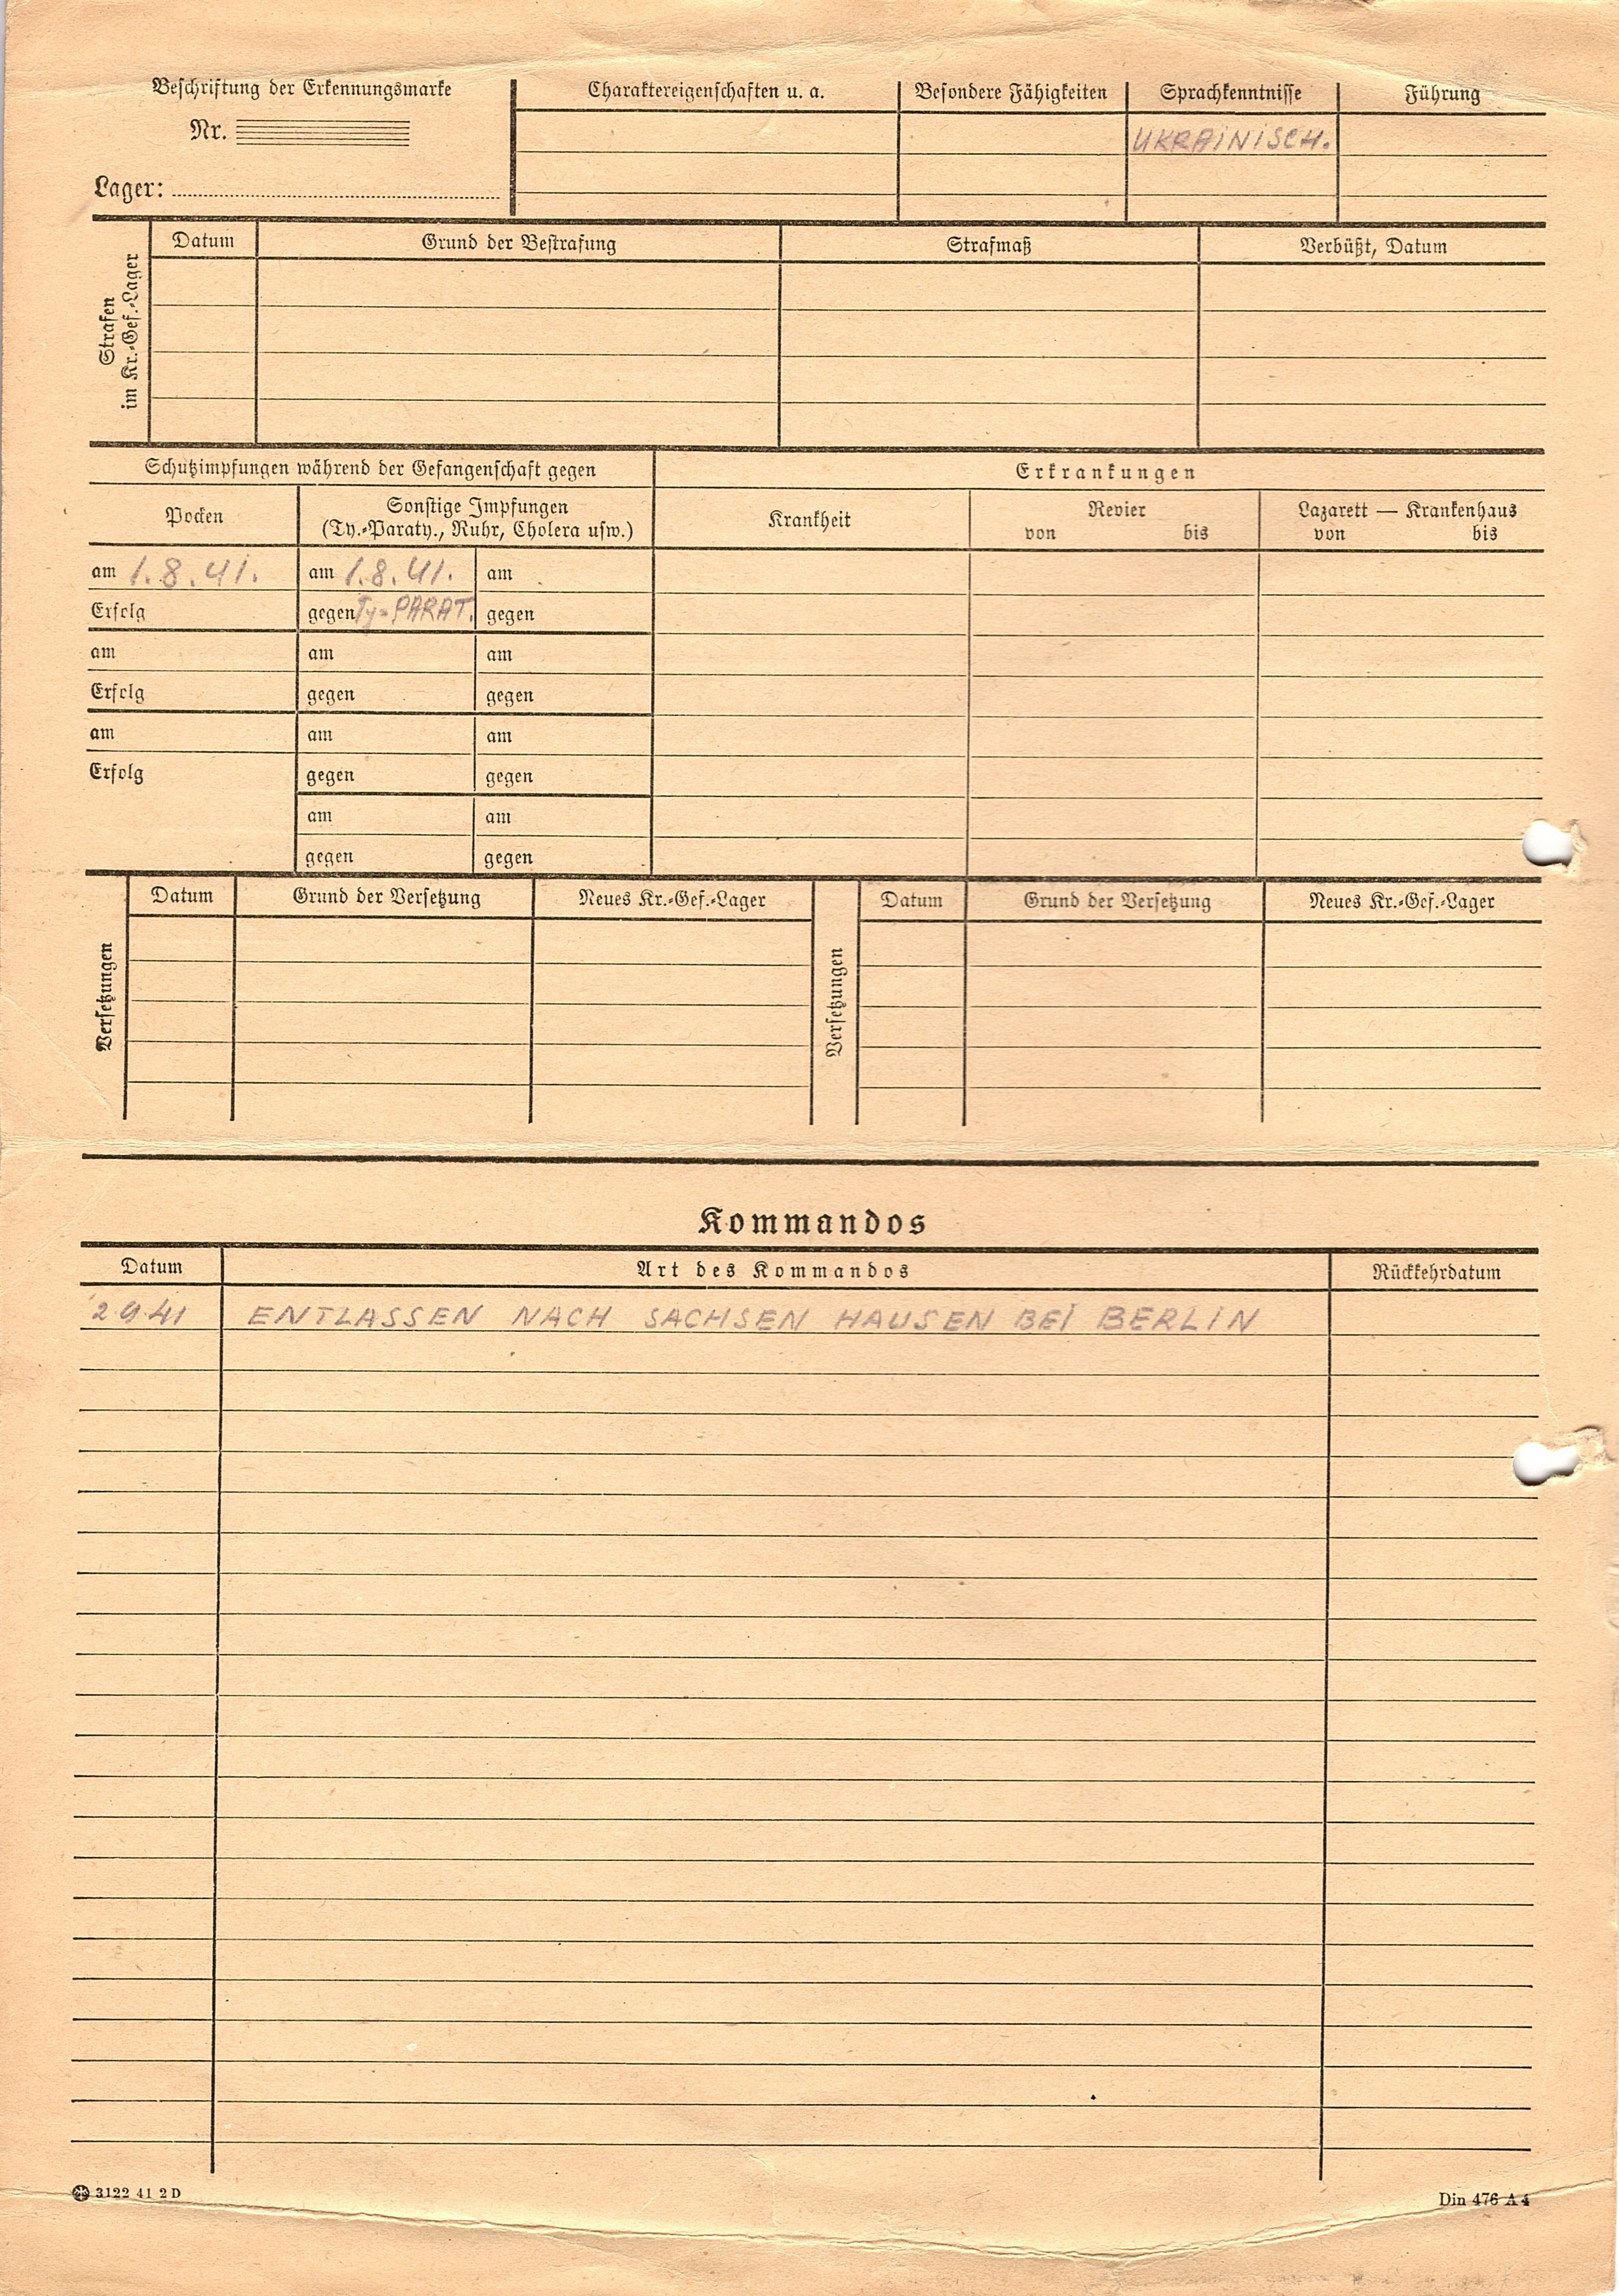 Beschriftung der Erkennungsmarke
Nr.
Lager:
Charaktereigenschaften u. a.
Besondere Fähigkeiten
Sprachkenntnisse
Führung
UKRAINISCH.
Strafen
im Kr.-Gef.-Lager
Datum
Grund der Bestrafung
Strafmaß
Verbüßt, Datum
Schutzimpfungen während der Gefangenschaft gegen
Erkrankungen
Pocken
Sonstige Impfungen
(Ty.-Paraty., Ruhr, Cholera usw.)
Krankheit
Revier
von bis
Lazarett — Krankenhaus
von bis
am 1.8.41. am 1.8.41. am
Erfolg gegen Ty=PARAT. gegen
am am am
Erfolg gegen gegen
am am am
Erfolg gegen gegen
am am
gegen gegen
Versetzungen
Datum Grund der Versetzung Neues Kr.-Gef.-Lager
Versetzungen
Datum Grund der Versetzung Neues Kr.-Gef.-Lager
Kommandos
Datum Art des Kommandos Rückkehrdatum
2 9 41 ENTLASSEN NACH SACHSEN HAUSEN BEI BERLIN
3122 41 2 D
Din 476 A 4